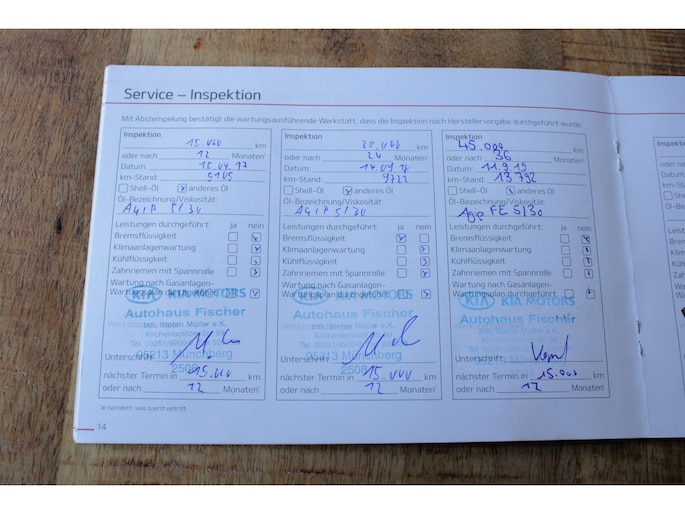 Service – Inspektion
Mit Abstempelung bestätigt die wartungsausführende Werkstatt, dass die Inspektion nach Herstellervorgabe durchgeführt wurde.
Inspektion
15.000 km
oder nach 12 Monaten¹
Datum:
km-Stand: 5105
Shell-Öl anderes Öl
Öl-Bezeichnung/Viskosität:
Agip 5/30
Leistungen durchgeführt: ja nein
Bremsflüssigkeit
Klimaanlagenwartung
Kühlflüssigkeit
Zahnriemen mit Spannrolle
Wartung nach Gasanlagen-
Wartungsplan durchgeführt:
KIA KIA MOTORS
Autohaus Fischer
Inh. Stefan Müller e.K.
95213 Münchberg
Unterschrift
nächster Termin in 15.000 km
oder nach 12 Monaten¹
Inspektion
km
oder nach 24 Monaten¹
Datum:
km-Stand: 9722
Shell-Öl anderes Öl
Öl-Bezeichnung/Viskosität:
Agip 5/30
Leistungen durchgeführt: ja nein
Bremsflüssigkeit
Klimaanlagenwartung
Kühlflüssigkeit
Zahnriemen mit Spannrolle
Wartung nach Gasanlagen-
Wartungsplan durchgeführt:
KIA KIA MOTORS
Autohaus Fischer
Inh. Stefan Müller e.K.
95213 Münchberg
Unterschrift
nächster Termin in 15.000 km
oder nach 12 Monaten¹
Inspektion
45.000 km
oder nach 36 Monaten¹
Datum: 11.9.19
km-Stand: 13792
Shell-Öl anderes Öl
Öl-Bezeichnung/Viskosität:
FE 5/30
Leistungen durchgeführt: ja nein
Bremsflüssigkeit
Klimaanlagenwartung
Kühlflüssigkeit
Zahnriemen mit Spannrolle
Wartung nach Gasanlagen-
Wartungsplan durchgeführt:
KIA KIA MOTORS
Autohaus Fischer
Inh. Stefan Müller e.K.
Unterschrift
nächster Termin in 15.000 km
oder nach 12 Monaten¹
¹Je nachdem, was zuerst eintritt.
14